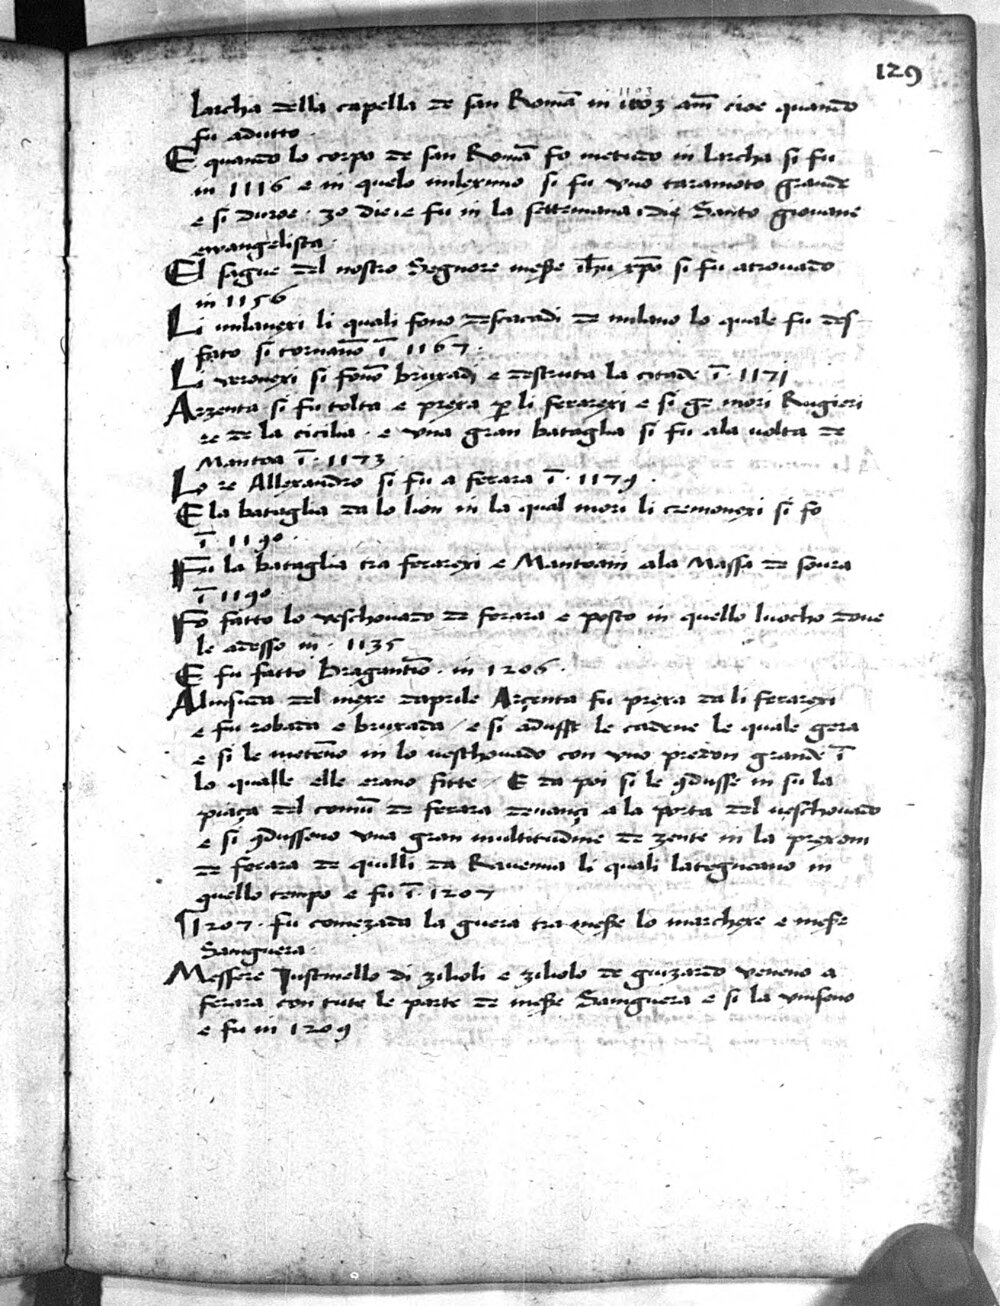 129
larcha della capella de san Romā in 1103 añi cioe quando
fu adutto.
E quando lo corpo de san Romā fo metudo in larcha si fu
in 1116 e in quelo mileximo si fu vno taramoto grande
e si duroe. 30 die. e fu in la settemana. die Santo giouane
evangelista.
El sague del nostro Segnore messe ihu xp̄o si fu atrouado
in 1156
Li milanexi li quali fono descacadi de milano lo quale fu des-
fato si tornano ī 1167.
Li veronexi si fono bruxadi e destruta la citade ī. 1171
Arzenta si fu tolta e prexa p li ferarexi e si ge mori Rugieri
re de la cicilia. e vna gran bataglia si fu ala uolta de
Mantoa ī. 1173.
Lo re Allexandro si fu a ferara ī. 1179.
E la bataglia da lo lion in la qual mori li cremonexi si fo
ī 1190.
Fu la bataglia tra ferarexi e Mantoani ala Massa de soura
ī 1190
Fo fatto lo veschouado de ferara e posto in quello luocho doue
le adesso in. 1135
E fu fatto bragantio. in 1206.
Alinsuda del mexe daprile Arcenta fu prexa da li ferarexi
e fu robada e bruxada / e si adusse le cadene le quale gera
e si le meteno in lo ueschouado con vno predon grande ī
lo qualle elle erano fitte / E da poi si le 9dusse in su la
piaça del comū de ferara denançi a la porta del ueschouado
e si 9dusseno vna gran multitudine de zente in la prexon
de ferara de quilli da Rauenna li quali lategneano in
quello tempo e fu ī 1207
1207. fu comezada la guera tra messe lo marchexe e messe
Saniguera.
Messere Iustinello di zilioli e ziliolo de guizardo veneno a
ferara con tute le parte de messe Saniguera e si la vinseno
e fu in 1209